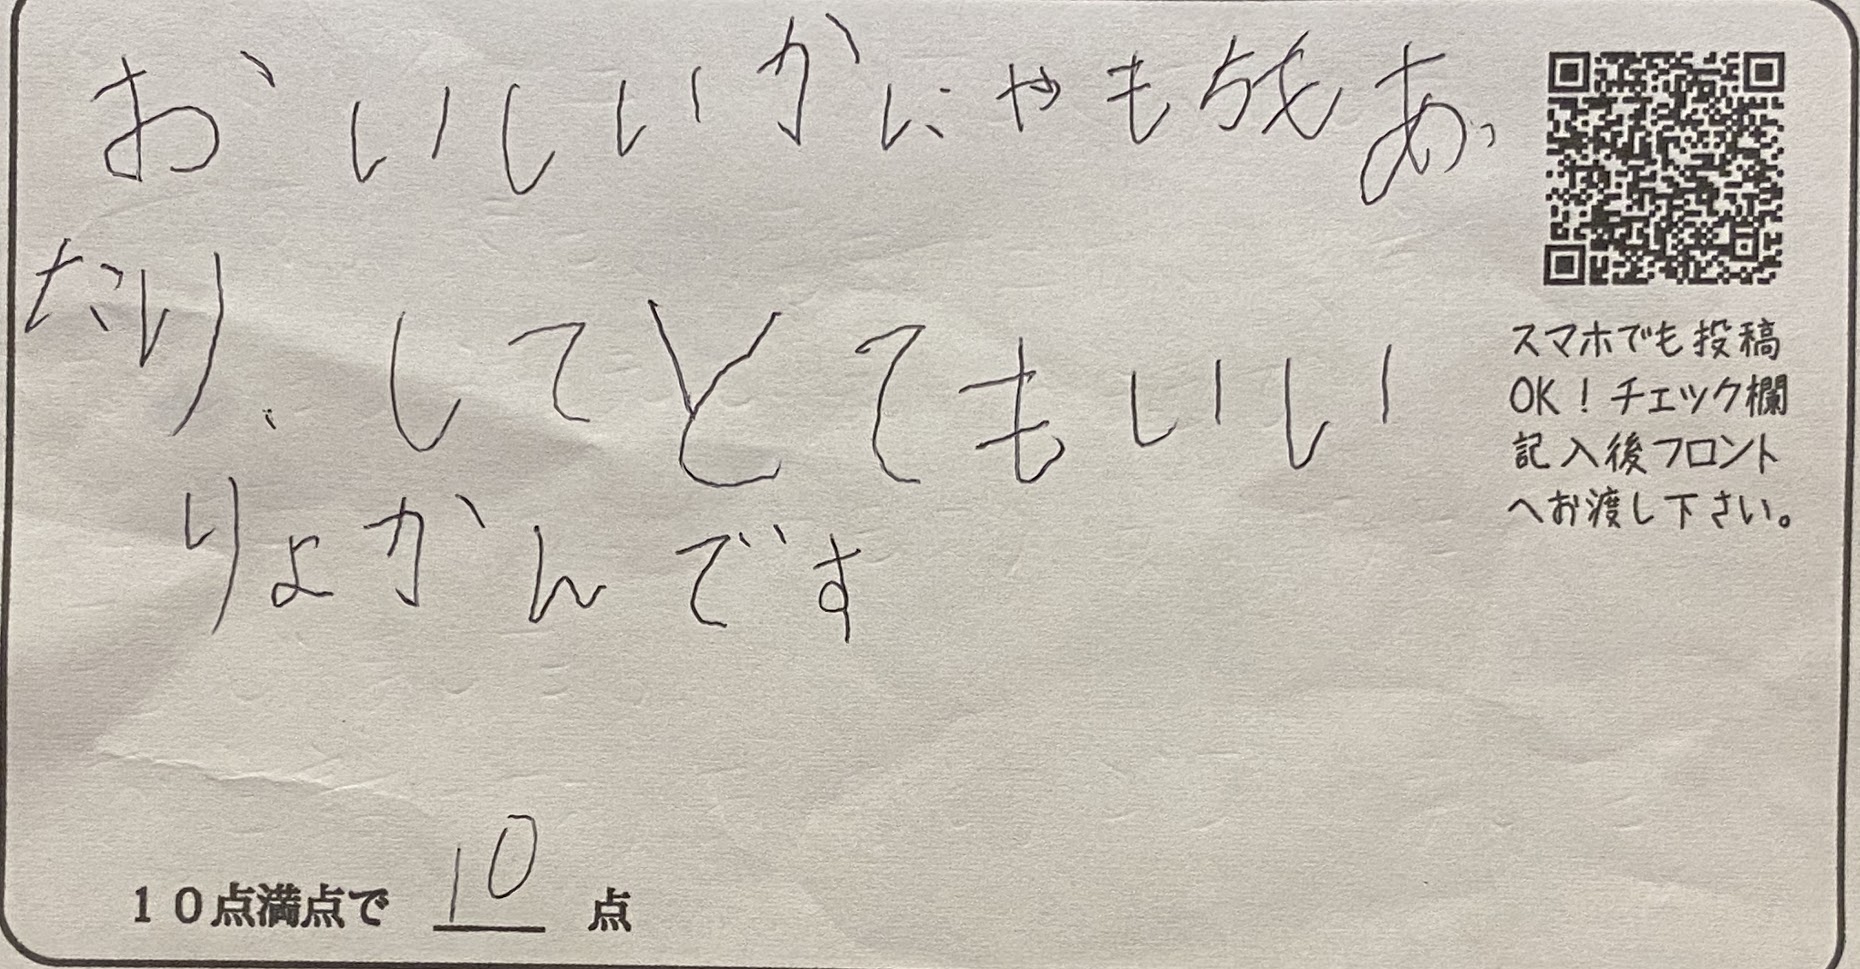 おいしいかにやもちもあっ
たり、してとてもいい
りょかんです
スマホでも投稿
OK！チェック欄
記入後フロント
へお渡し下さい。
１０点満点で 10 点